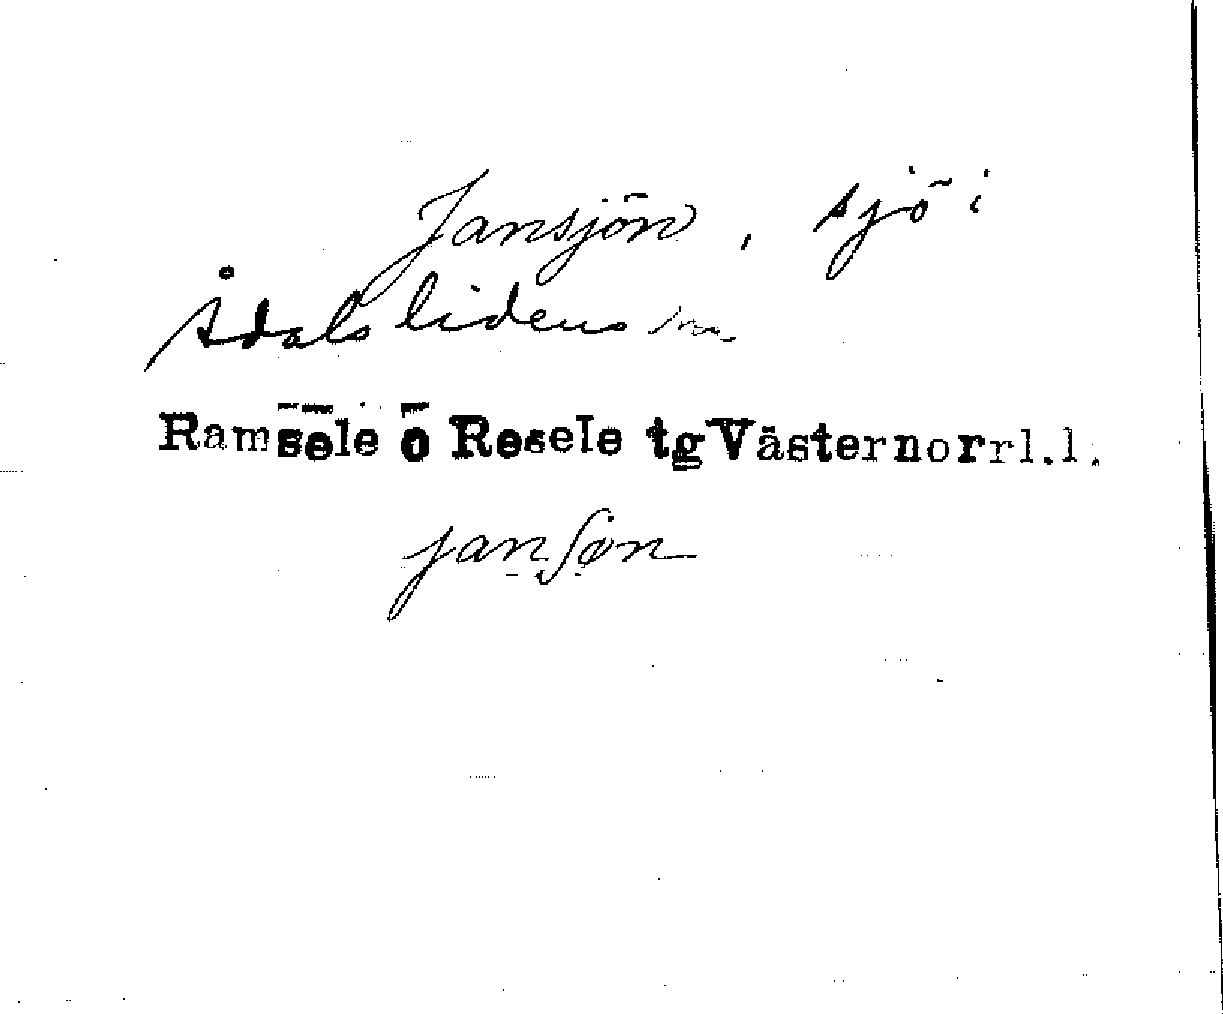 Jansjön, sjö i
Ådalslidens sn.
Ramsele o Resele tg Västernorrl.l.
janʃøn